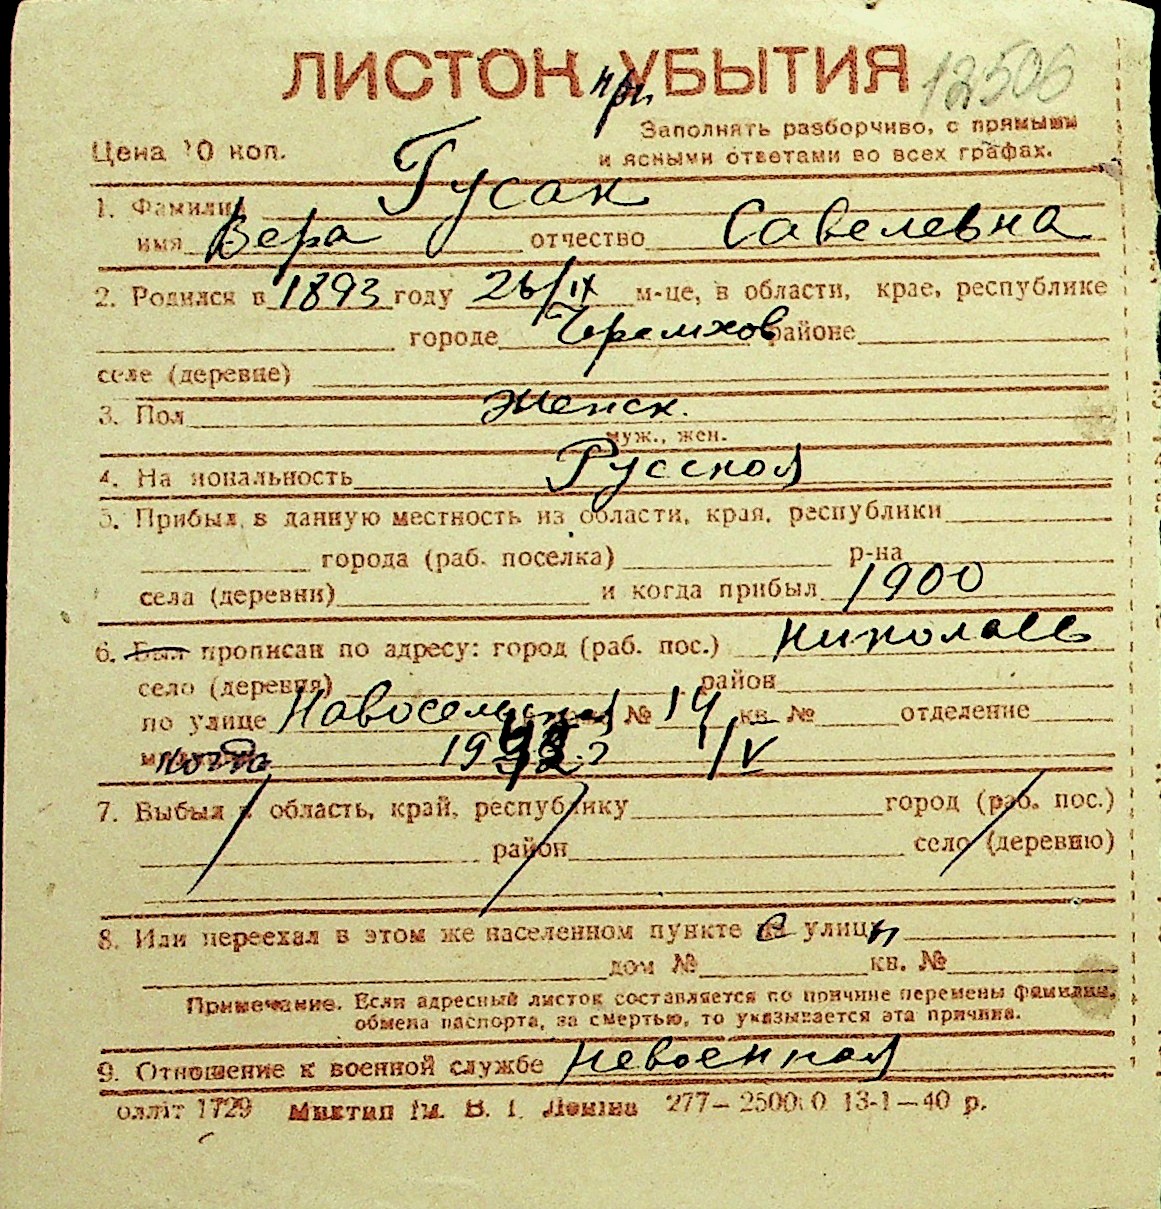 ЛИСТОК при УБЫТИЯ 12506
Цена 10 коп.
Заполнять разборчиво, с прямыми
и ясными ответами во всех графах.
1. Фамилия Гусак
имя Вера отчество Савелевна
2. Родился в 1893 году 26/IX м-це, в области, крае, республике
городе Черемхов районе
селе (деревне)
3. Пол Женск.
муж., жен.
4. На иональность Русская
5. Прибыл в данную местность из области, края, республики
города (раб. поселка) р-на
села (деревни) и когда прибыл 1900
6. Был прописан по адресу: город (раб. пос.) Николаев
село (деревня) район
по улице Новосельская № 14 кв. № отделение
когда 1/V
7. Выбыл в область, край, республику город (раб. пос.)
район село (деревню)
8. Или переехал в этом же населенном пункте в улицы
дом № кв. №
Примечание. Если адресный листок составляется по причине перемены фамилии,
обмена паспорта, за смертью, то указывается эта причина.
9. Отношение к военной службе Невоенная
оллiт 1729 Миктип iм. В. I. Ленiна 277—2500 0 13-1—40 р.